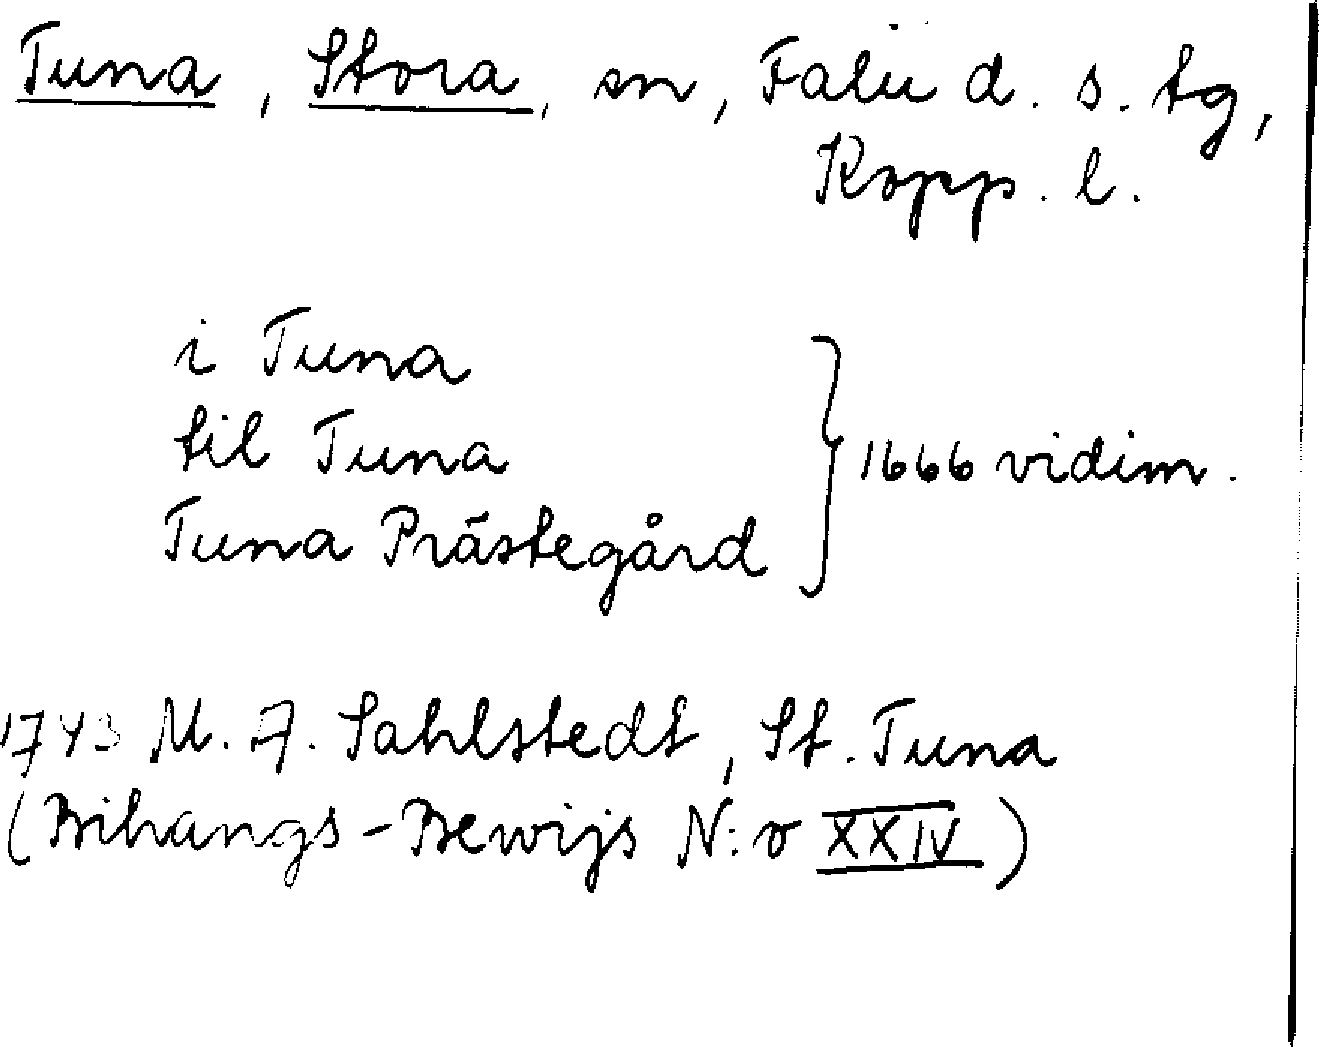 Tuna, Stora, sn, Falu d. s. tg,
Kopp. l.
i Tuna
til Tuna
Tuna Prästegård
1666 vidim.
1743 M. A. Sahlstedt, St. Tuna
(Bihangs-Bewijs N:o XXIV)